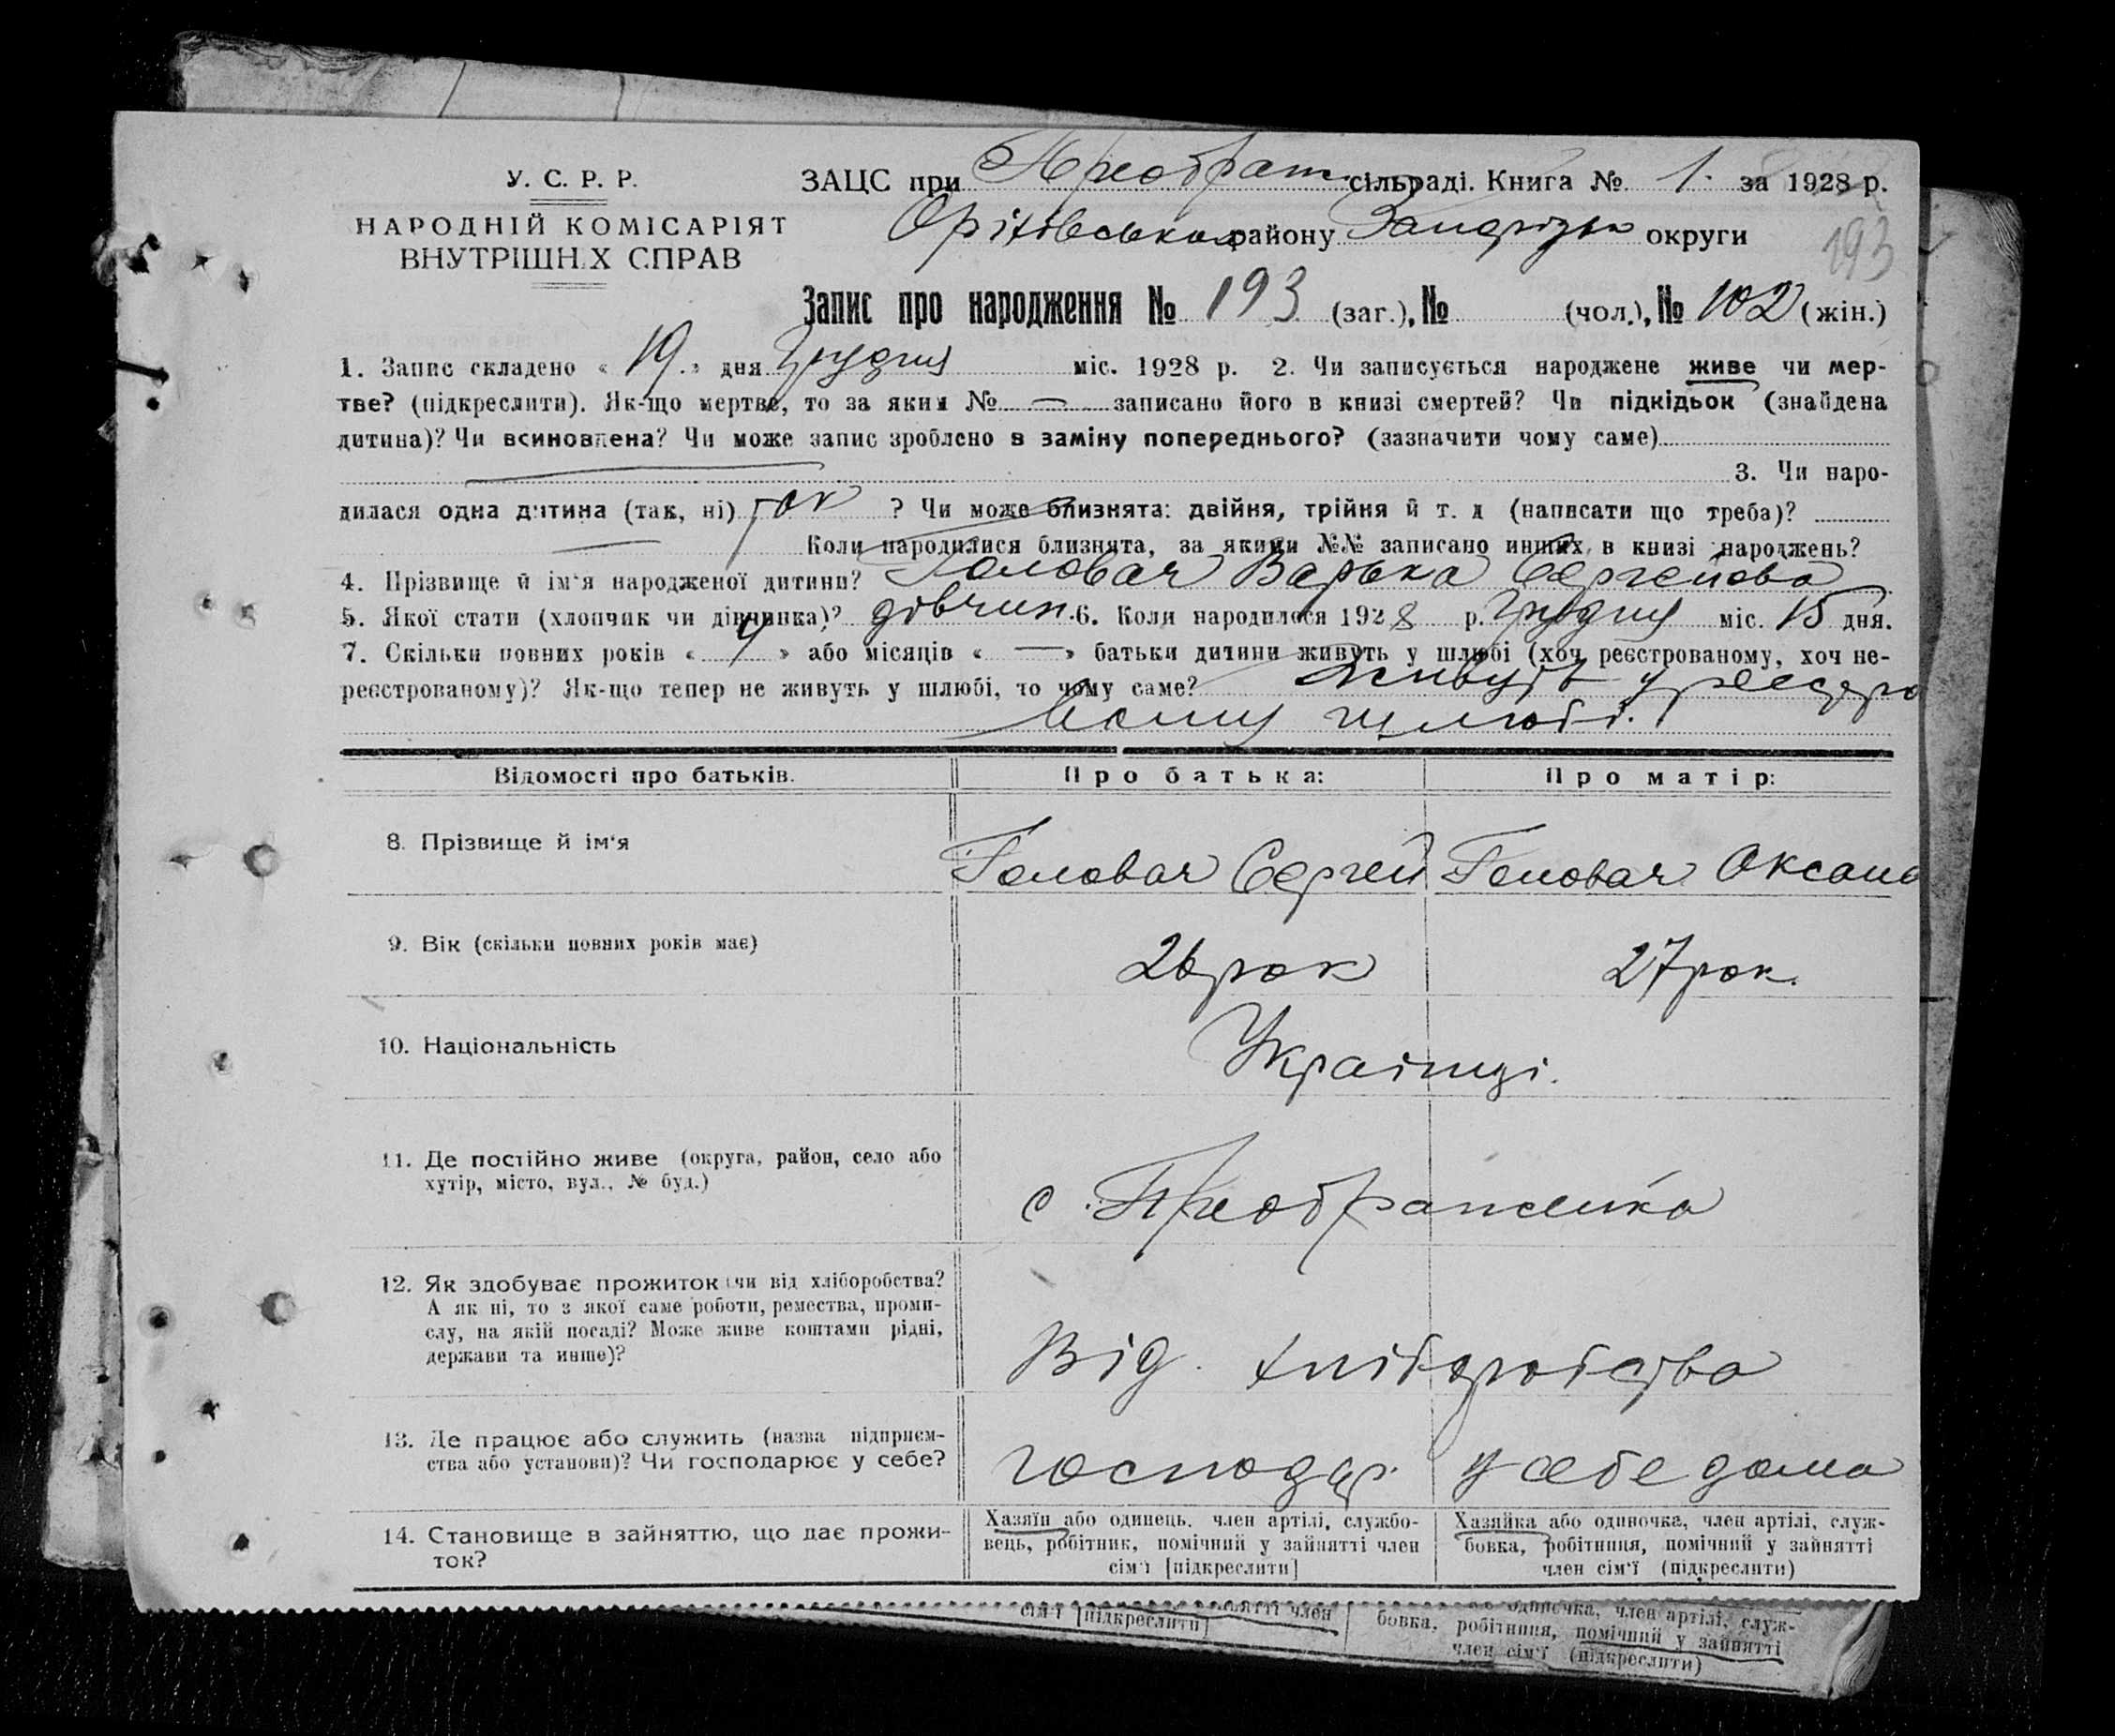 У. С. Р. Р.
НАРОДНІЙ КОМІСАРІЯТ
ВНУТРІШН.Х СПРАВ
ЗАЦС при Преображ. сільраді. Книга № 1. за 1928 р.
Оріхівського району Запорізьк округи
193
Запис про народження № 193 (заг.), № (чол.), № 102 (жін.)
1. Запис складено « 19. » дня грудня міс. 1928 р. 2. Чи записується народжене живе чи мер-
тве? (підкреслити). Як-що мертве, то за яким № — записано його в книзі смертей? Чи підкідьок (знайдена
дитина)? Чи всиновлена? Чи може запис зроблено в заміну попереднього? (зазначити чому саме)
3. Чи наро-
дилася одна дитина (так, ні) так ? Чи може близнята: двійня, трійня й т. д (написати що треба)?
Коли народилися близнята, за якими №№ записано инших в книзі народжень?
4. Прізвище й ім‘я народженої дитини? Головач Варька Сергейова
5. Якої стати (хлопчик чи дівчинка)? дівчин. 6. Коли народилося 1928 р. грудня міс. 15 дня.
7. Скільки повних років « 4 » або місяців « — » батьки дитини живуть у шлюбі (хоч реєстрованому, хоч не-
реєстрованому)? Як-що тепер не живуть у шлюбі, то чому саме? живуть у реєстро
ваному шлюбі.
Відомості про батьків. Про батька: Про матір:
8. Прізвище й ім‘я Головач Сергей Головач Оксана
9. Вік (скільки повних років має) 26 рок 27 рок.
10. Національність Українці.
11. Де постійно живе (округа, район, село або
хутір, місто, вул., № буд.)
с. Преображенка
12. Як здобуває прожиток (чи від хліборобства?
А як ні, то з якої саме роботи, ремества, проми-
слу, на якій посаді? Може живе коштами рідні,
держави та инше)?
Від хліборобства
13. Де працює або служить (назва підприєм-
ства або установи)? Чи господарює у себе?
господар. у себе дома
14. Становище в зайняттю, що дає прожи-
ток?
Хазяїн або одинець, член артілі, службо-
вець, робітник, помічний у зайнятті член
сім‘ї [підкреслити]
Хазяйка або одиночка, член артілі, служ-
бовка, робітниця, помічний у зайнятті
член сім‘ї (підкреслити)
сім‘ї [підкреслити]
одиночка, член артілі, служ-
бовка, робітниця, помічний у зайнятті
член сім‘ї (підкреслити)